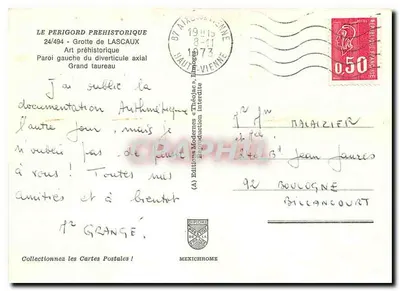 LE PERIGORD PREHISTORIQUE
24/494 - Grotte de LASCAUX
Art préhistorique
Paroi gauche du diverticule axial
Grand taureau
J'ai oublié la
documentation Arithmétique
l'autre jour, mais je
n'oublie pas de penser
à vous ! Toutes nos
amitiés et à bientôt
GRANGÉ.
Collectionnez les Cartes Postales !
(A) Editions Modernes « Théojac », Limoges
Reproduction interdite
MEXICHROME
87
1973
HAUTE-VIENNE
0,50
BALAIZIER
Bd Jean Jaurès
92 BOULOGNE
BILLANCOURT